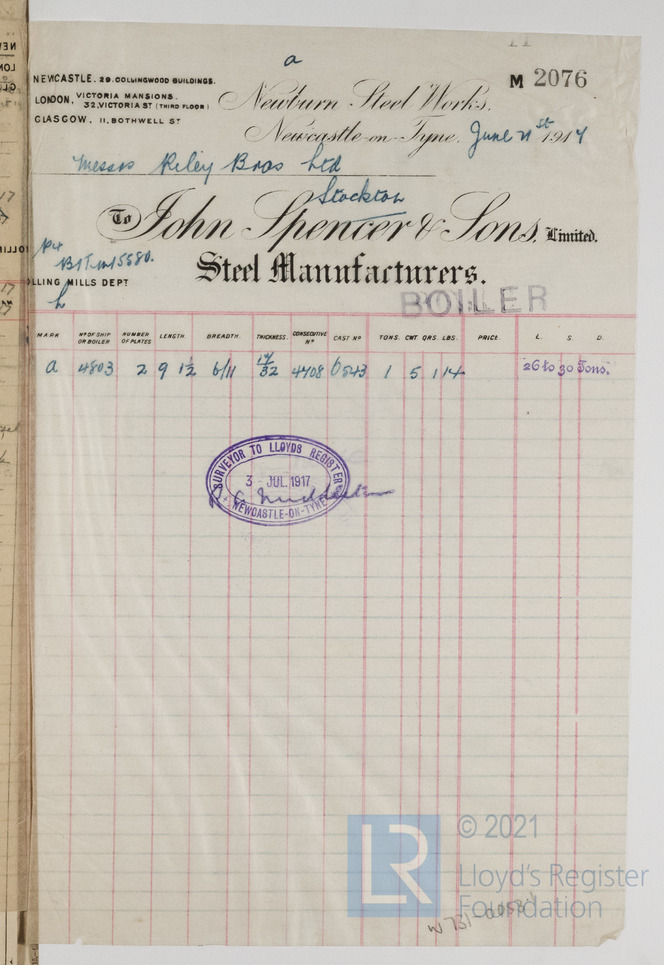 a
NEWCASTLE. 29. COLLINGWOOD BUILDINGS.
M 2076
LONDON, VICTORIA MANSIONS. 32, VICTORIA ST (THIRD FLOOR)
Newburn Steel Works,
GLASGOW, 11, BOTHWELL ST
Newcastle-on-Tyne. June 21st 1917
Messrs Riley Bros Ltd
Stockton
To John Spencer & Sons, Limited.
15580.
Steel Manufacturers.
OLLING MILLS DEPT
BOILER
MARK Nº OF SHIP OR BOILER NUMBER OF PLATES LENGTH. BREADTH. THICKNESS. CONSECUTIVE Nº CAST Nº TONS. CWT. QRS. LBS. PRICE. L. S. D.
a 4803 2 9 1½ 6/11 4708 6543 1 5 1 14 26 to 30 Tons.
SURVEYOR TO LLOYDS REGISTER
3 - JUL. 1917
NEWCASTLE-ON-TYNE
LR
© 2021
Lloyd's Register
Foundation